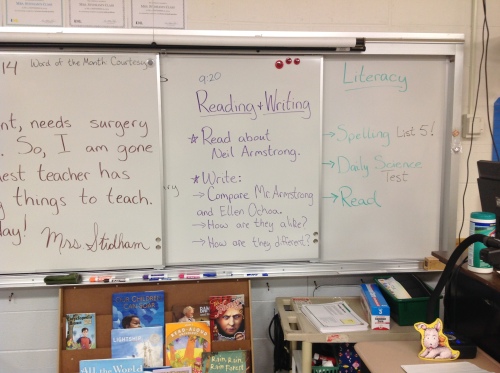 14 Word of the Month: Courtesy
nt, needs surgery
. So, I am gone
nest teacher has
g things to teach.
day!
Mrs. Stidham
9:20
Reading + Writing
Read about
Neil Armstrong.
Write:
→ Compare Mr. Armstrong
and Ellen Ochoa.
→ How are they alike?
→ How are they different?
Literacy
→ Spelling List 5!
→ Daily Science
Test
→ Read
LIGHTSHIP
READ-ALOUD
All the World
Rain Rain
Rain Forest